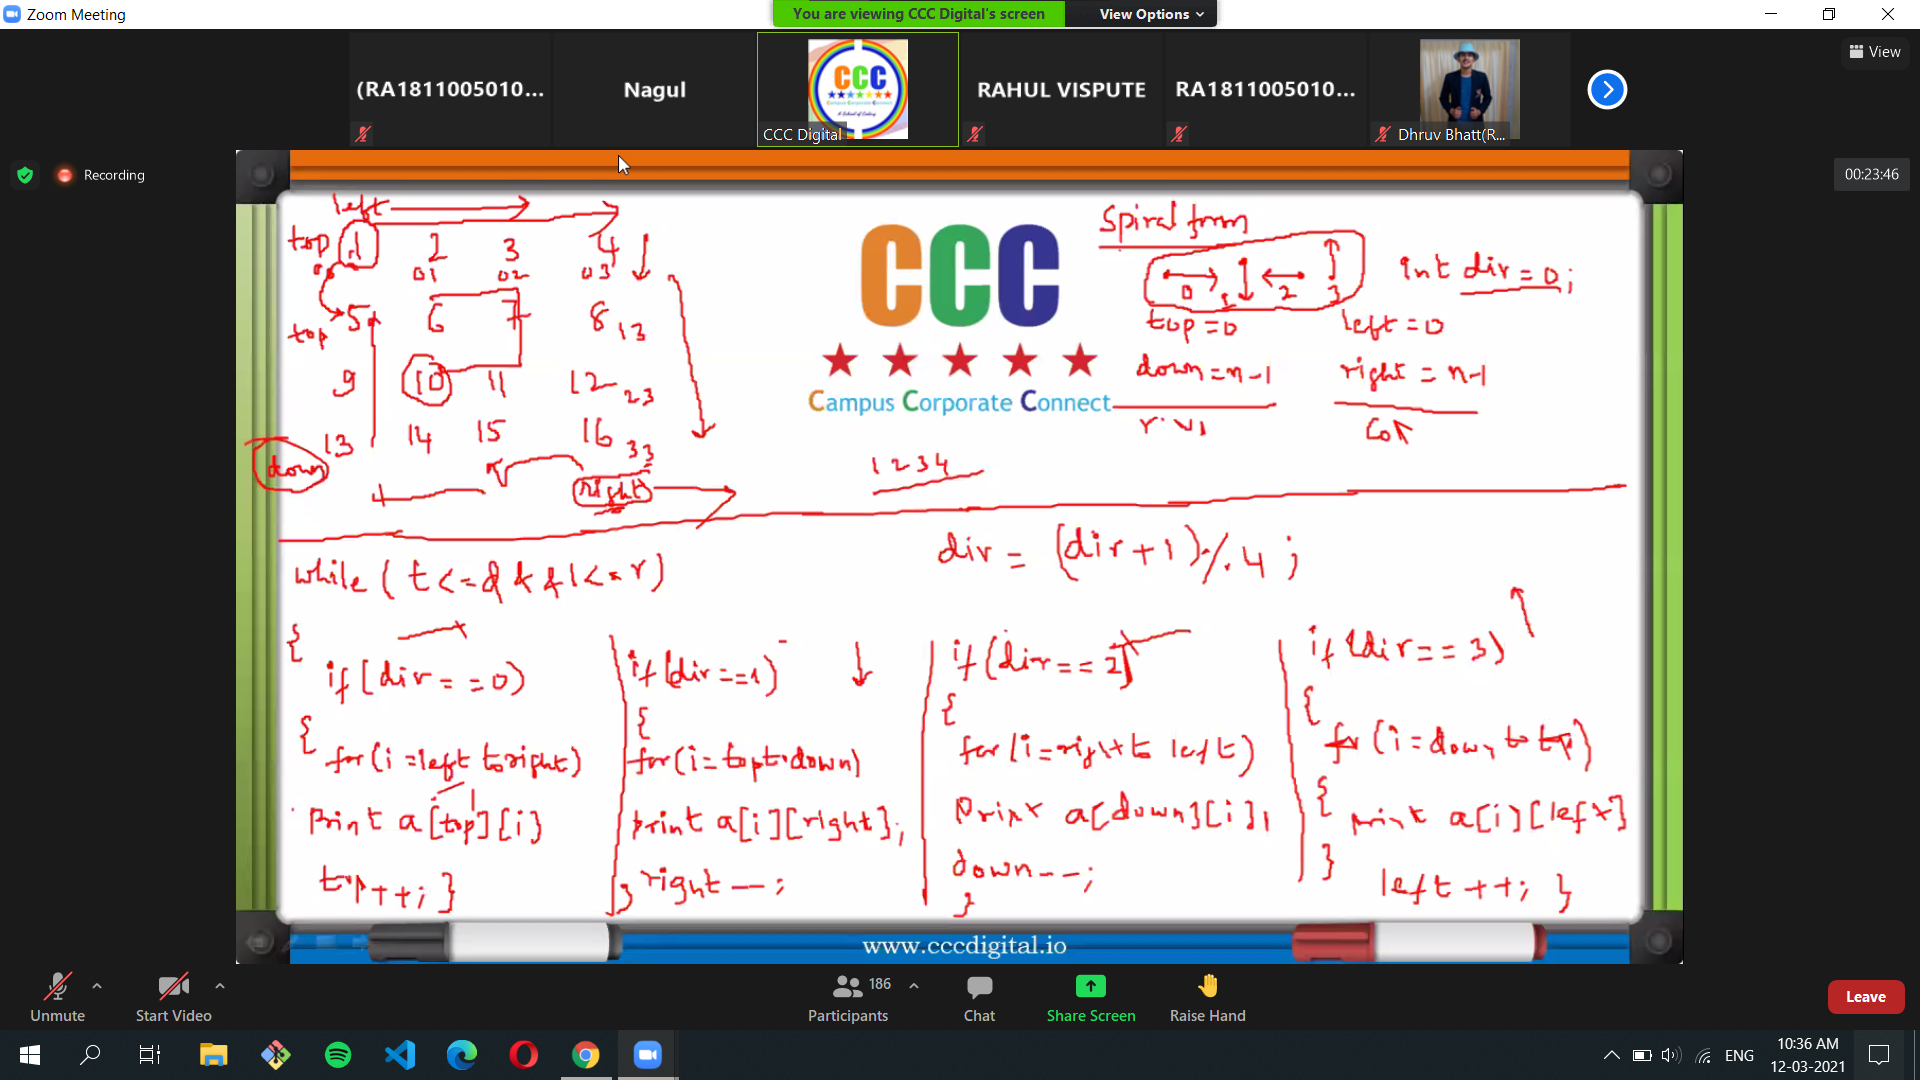 Zoom Meeting
You are viewing CCC Digital's screen
View Options
(RA1811005010...
Nagul
CCC
Campus Corporate Connect
A School of Coding
CCC Digital
RAHUL VISPUTE
RA1811005010...
Dhruv Bhatt(R...
View
Recording
00:23:46
left
top 1 2 3 4
01 02 03
top 5 6 7 8 13
9 10 11 12 23
13 14 15 16 33
down
right
CCC
Campus Corporate Connect
1234
Spiral form
0 1 2 3
int dir = 0;
top = 0 left = 0
down = n-1 right = n-1
col
dir = (dir+1)%4;
while (t<=d && l<=r)
{
if(dir==0)
{
for(i=left to right)
print a[top][i]
top++; }
if(dir==1)
{
for(i=top to down)
print a[i][right];
} right--;
if(dir==2)
{
for(i=right to left)
print a[down][i],
down--;
}
if(dir==3)
{
for(i=down to top)
{ print a[i][left]
}
left++; }
www.cccdigital.io
Unmute
Start Video
186
Participants
Chat
Share Screen
Raise Hand
Leave
ENG
10:36 AM
12-03-2021